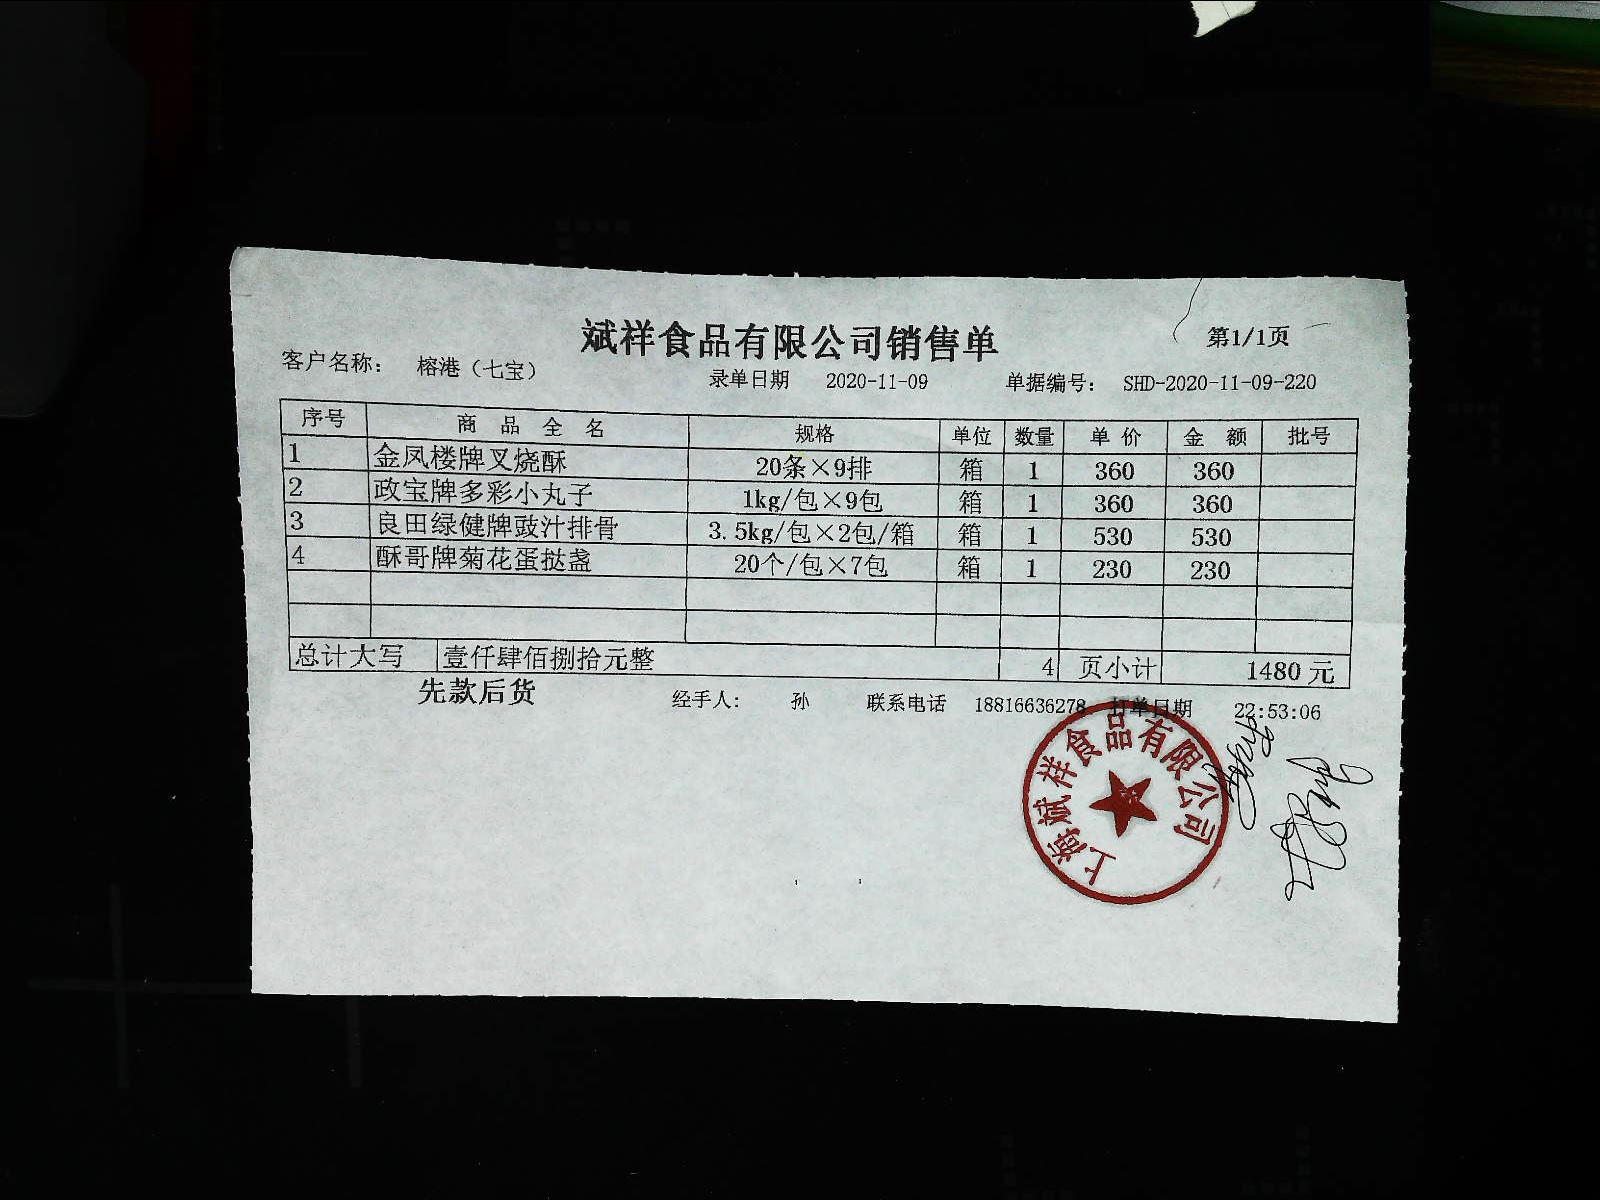 斌祥食品有限公司销售单
第1/1页
客户名称： 榕港（七宝） 录单日期 2020-11-09 单据编号： SHD-2020-11-09-220
序号 商品全名 规格 单位 数量 单价 金额 批号
1 金凤楼牌叉烧酥 20条×9排 箱 1 360 360
2 政宝牌多彩小丸子 1kg/包×9包 箱 1 360 360
3 良田绿健牌豉汁排骨 3.5kg/包×2包/箱 箱 1 530 530
4 酥哥牌菊花蛋挞盏 20个/包×7包 箱 1 230 230
总计大写 壹仟肆佰捌拾元整 4 页小计 1480 元
先款后货 经手人： 孙 联系电话 18816636278 打单日期 22:53:06
上海斌祥食品有限公司